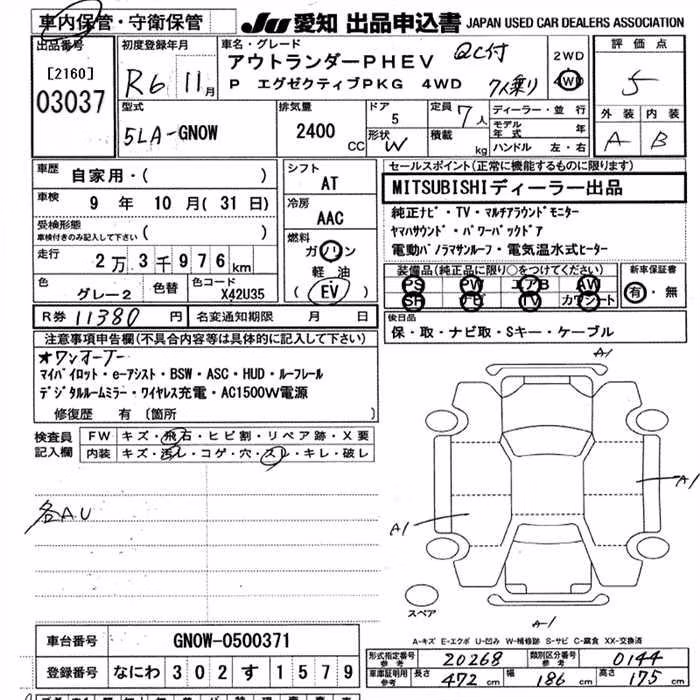 車内保管・守衛保管
JU 愛知 出品申込書 JAPAN USED CAR DEALERS ASSOCIATION
出品番号
[2160]
03037
初度登録年月
R6 11月
車名・グレード
アウトランダーPHEV QC付
P エグゼクティブPKG 4WD 7人乗り
2WD
4WD
評価点
5
外装 内装
A B
型式
5LA-GN0W
排気量
2400 CC
ドア
5
形状 W
定員 7人
積載 kg
ディーラー・並行
モデル年式 年
ハンドル 左・右
車歴
自家用・( )
車検
9 年 10 月 ( 31 日)
受検形態
車検付きのみ記入して下さい ( )
走行
2万 3千 9 7 6 km
色
グレー2
色替
色コード
X42U35
シフト
AT
冷房
AAC
燃料
ガソリン
軽油
( EV )
R券 11380 円 名変通知期限 月 日
セールスポイント(正常に機能するものに限ります)
MITSUBISHIディーラー出品
純正ナビ・TV・マルチアラウンドモニター
ヤマハサウンド・パワーバックドア
電動パノラマサンルーフ・電気温水式ヒーター
装備品(純正品に限り○をつけてください)
PS PW エアB AW
SR ナビ TV カワシート
新車保証書
有・無
後日品
保・取・ナビ取・Sキー・ケーブル
注意事項申告欄(不具合内容等は具体的に記入して下さい)
*ワンオーナー
マイパイロット・e-アシスト・BSW・ASC・HUD・ルーフレール
デジタルルームミラー・ワイヤレス充電・AC1500W電源
修復歴 有 〔箇所
検査員記入欄
FW キズ・飛石・ヒビ割・リペア跡・X要
内装 キズ・汚レ・コゲ・穴・スレ・キレ・破レ
各AU
A1
A1
A1
A-1
スペア
A-キズ E-エクボ U-凹み W-補修跡 S-サビ C-腐食 XX-交換済
車台番号 GN0W-0500371
登録番号 なにわ 3 0 2 す 1 5 7 9
形式指定番号 参考 20268 類別区分番号 参考 0144
車庫証明用 参考 長さ 472 cm 幅 186 cm 高さ 175 cm